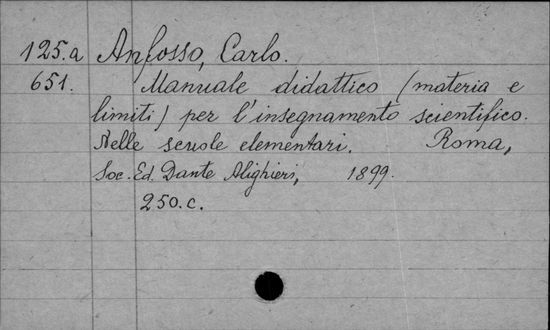 125.a Anfosso, Carlo.
651. Manuale didattico (materia e
limiti) per l'insegnamento scientifico.
Nelle scuole elementari. Roma,
Soc. Ed. Dante Alighieri, 1899.
250.c.